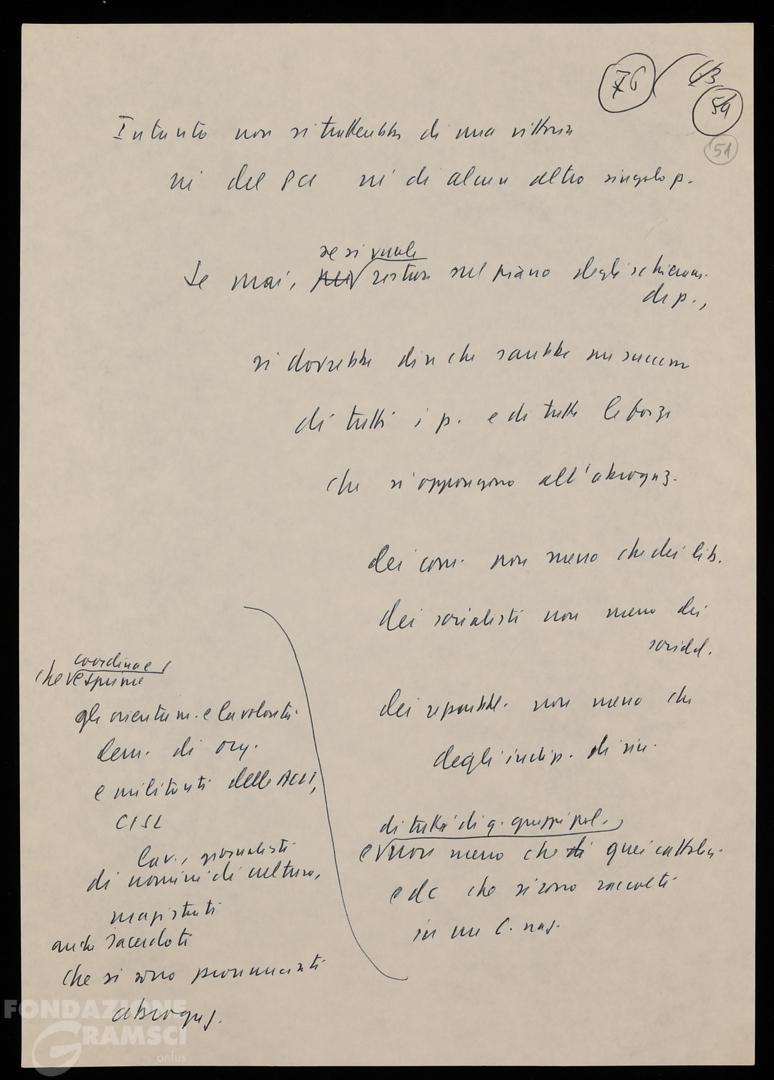 76
63
54
51
Intanto non si tratterebbe di una vittoria
né del PCI né di alcun altro singolo p.
se si vuole
Se mai, restare sul piano degli schieram.
di p.,
si dovrebbe dire che sarebbe un successo
di tutti i p. e di tutte le forze
che si oppongono all'abrogaz.
dei com. non meno che dei lib.
dei socialisti non meno dei
socidel.
dei repubbl. non meno che
degli indip. di sin.
di tutti di q. gruppi pol.
e non meno che di quei cattolici
e dc che si sono raccolti
in un C. naz.
coordina e
che esprime
gli orientam. e la volontà
dem. di org.
e militanti delle ACLI,
CISL
lav., giornalisti
di uomini di cultura,
magistrati
anche sacerdoti
che si sono pronunciati
abrogaz.
FONDAZIONE
GRAMSCI
onlus